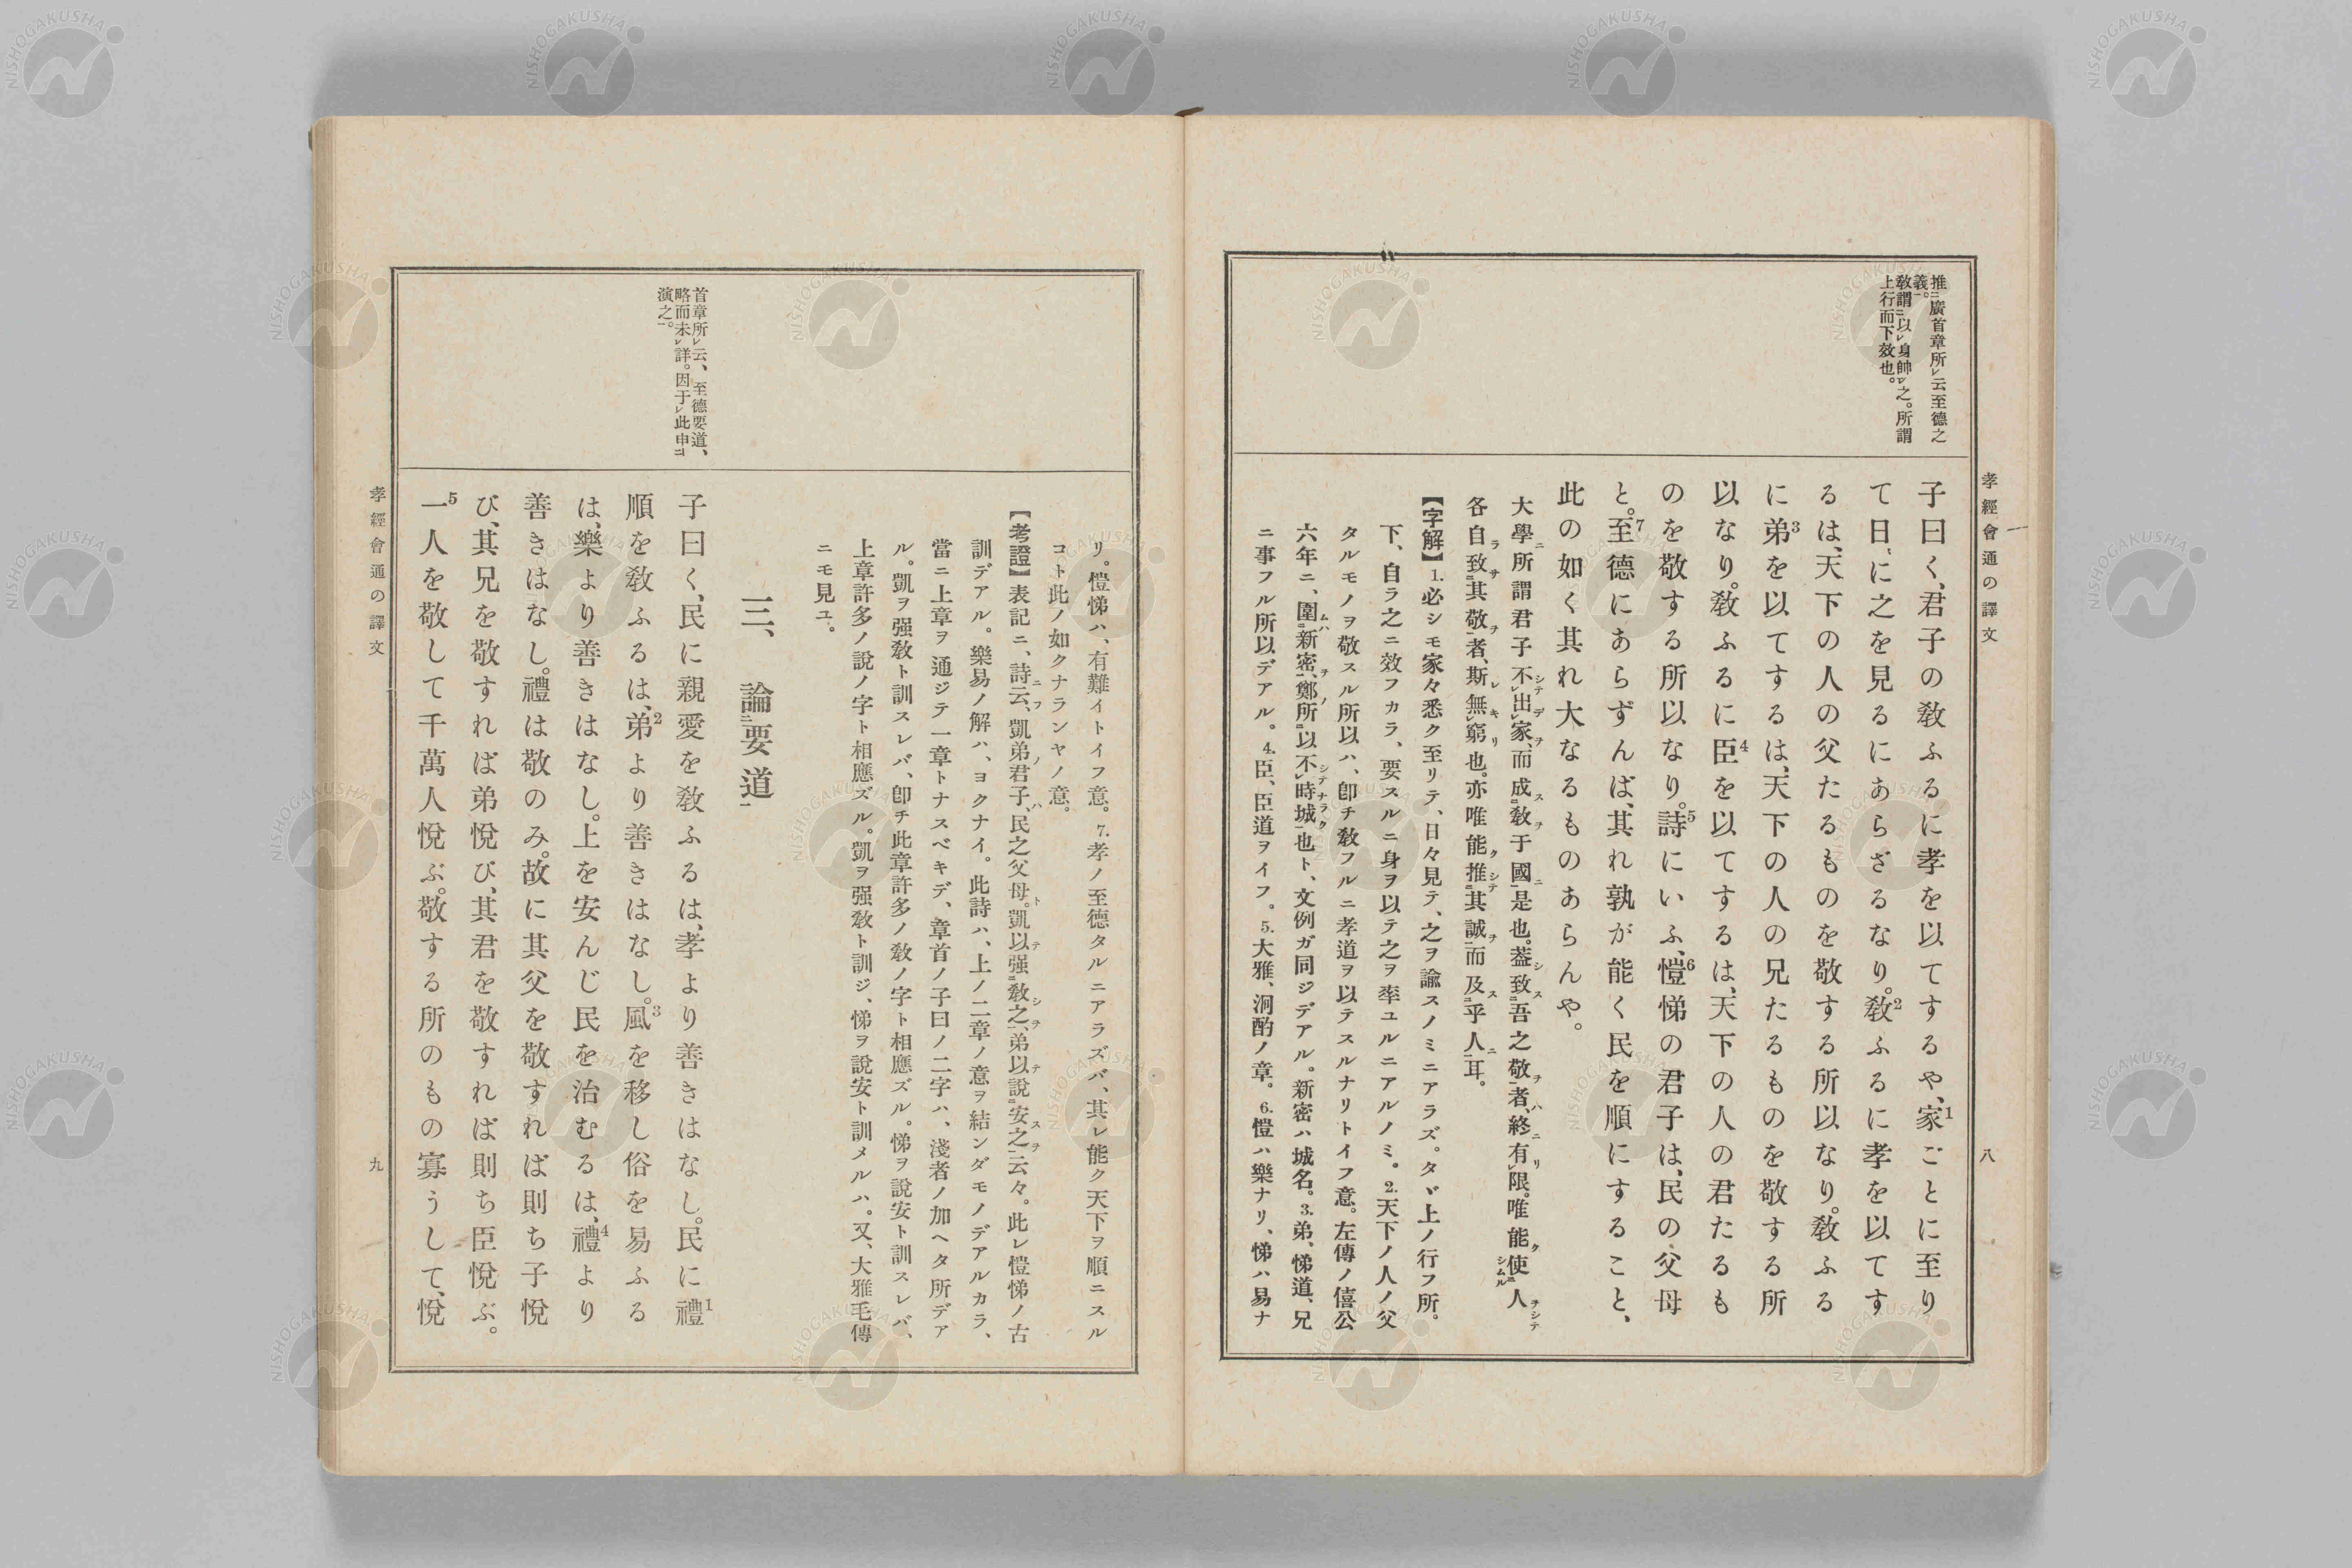 孝經會通の譯文
八
推二廣首章所レ云至德之
義一。
敎謂二以レ身帥レ之。所謂
上行而下效也。
子曰く、君子の敎ふるに孝を以てするや、家1ごとに至り
て日〻に之を見るにあらざるなり。敎2ふるに孝を以てす
るは、天下の人の父たるものを敬する所以なり。敎ふる
に弟3を以てするは、天下の人の兄たるものを敬する所
以なり。敎ふるに臣4を以てするは、天下の人の君たるも
のを敬する所以なり。詩5にいふ、愷6悌の君子は、民の父母
と。至7德にあらずんば、其れ孰が能く民を順にすること、
此の如く其れ大なるものあらんや。
大學ニ所謂君子不シテレ出デレ家ヲ、而成スニ敎ヲ于國ニ一是也。蓋シ致スニ吾之敬ヲ一者ハ、終ニ有リレ限。唯能ク使シムルニ人ヲシテ
各自ラ致サニ其敬ヲ一者、斯レ無キレ窮リ也。亦唯能ク推シテニ其誠ヲ一而及スニ乎人ニ一耳。
【字解】1.必シモ家々悉ク至リテ、日々見テ、之ヲ諭スノミニアラズ。タヾ上ノ行フ所。
下、自ラ之ニ效フカラ、要スルニ身ヲ以テ之ヲ率ユルニアルノミ。2.天下ノ人ノ父
タルモノヲ敬スル所以ハ、卽チ敎フルニ孝道ヲ以テスルナリトイフ意。左傳ノ僖公
六年ニ、圍ムハニ新密ヲ一、鄭ノ所ニ以不シテレ時ナラ城ク一也ト、文例ガ同ジデアル。新密ハ城名。3.弟、悌道、兄
ニ事フル所以デアル。4.臣、臣道ヲイフ。5.大雅、泂酌ノ章。6.愷ハ樂ナリ、悌ハ易ナ
リ。愷悌ハ、有難イトイフ意。7.孝ノ至德タルニアラズバ、其レ能ク天下ヲ順ニスル
コト此ノ如クナランヤノ意。
【考證】表記ニ、詩ニ云フ、凱弟ノ君子ハ、民之父母ト。凱以テ强ニ敎シ之ヲ一、弟以テ說ニ安ス之ヲ一云々。此レ愷悌ノ古
訓デアル。樂易ノ解ハ、ヨクナイ。此詩ハ、上ノ二章ノ意ヲ結ンダモノデアルカラ、
當ニ上章ヲ通ジテ一章トナスベキデ、章首ノ子曰ノ二字ハ、淺者ノ加ヘタ所デア
ル。凱ヲ强敎ト訓スレバ、卽チ此章許多ノ敎ノ字ト相應ズル。悌ヲ說安ト訓スレバ、
上章許多ノ說ノ字ト相應ズル。凱ヲ强敎ト訓ジ、悌ヲ說安ト訓メルハ。又、大雅毛傳
ニモ見ユ。
三、論二要道一
首章所レ云、至德要道、
略而未レ詳。因于レ此申二
演之一。
子曰く、民に親愛を敎ふるは、孝より善きはなし。民に禮1
順を敎ふるは、弟2より善きはなし。風3を移し俗を易ふる
は、樂より善きはなし。上を安んじ民を治むるは、禮4より
善きはなし。禮は敬のみ。故に其父を敬すれば則ち子悅
び、其兄を敬すれば弟悅び、其君を敬すれば則ち臣悅ぶ。
一5人を敬して千萬人悅ぶ。敬する所のもの寡うして、悅
孝經會通の譯文
九